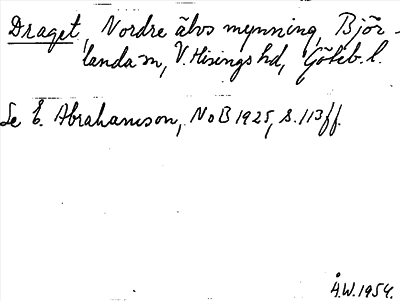 Draget, Nordre älvs mynning, Björ-
landa sn, V. Hisings hd, Göteb. l.
Se E. Abrahamson, NoB 1925, s. 113 ff.
Å.W. 1954.